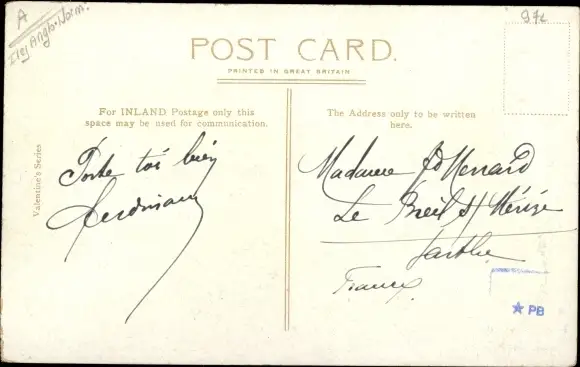 A
Iles Anglo-Norm.
97L
POST CARD.
PRINTED IN GREAT BRITAIN
For INLAND Postage only this
space may be used for communication.
The Address only to be written
here.
Valentine's Series
Porte toi bien
Madame Menard
Le Breil s/ Mérize
Sarthe
France
★ PB